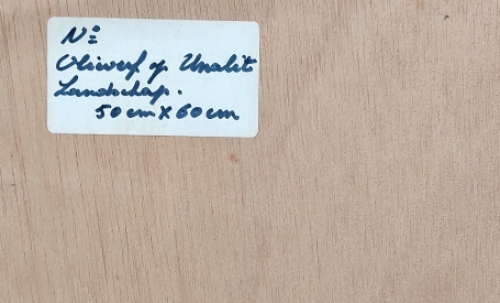 No
Olieverf op Unalit
Landschap.
50 cm X 60 cm